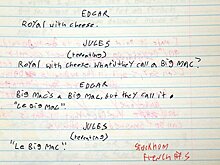 EDGAR
Royal with cheese.
JULES
(repeating)
Royal with cheese. What'd they call a Big Mac?
EDGAR
Big Mac's a Big Mac, but they call it
"Le Big Mac".
JULES
(repeating)
"Le Big Mac".
Stockholm
French